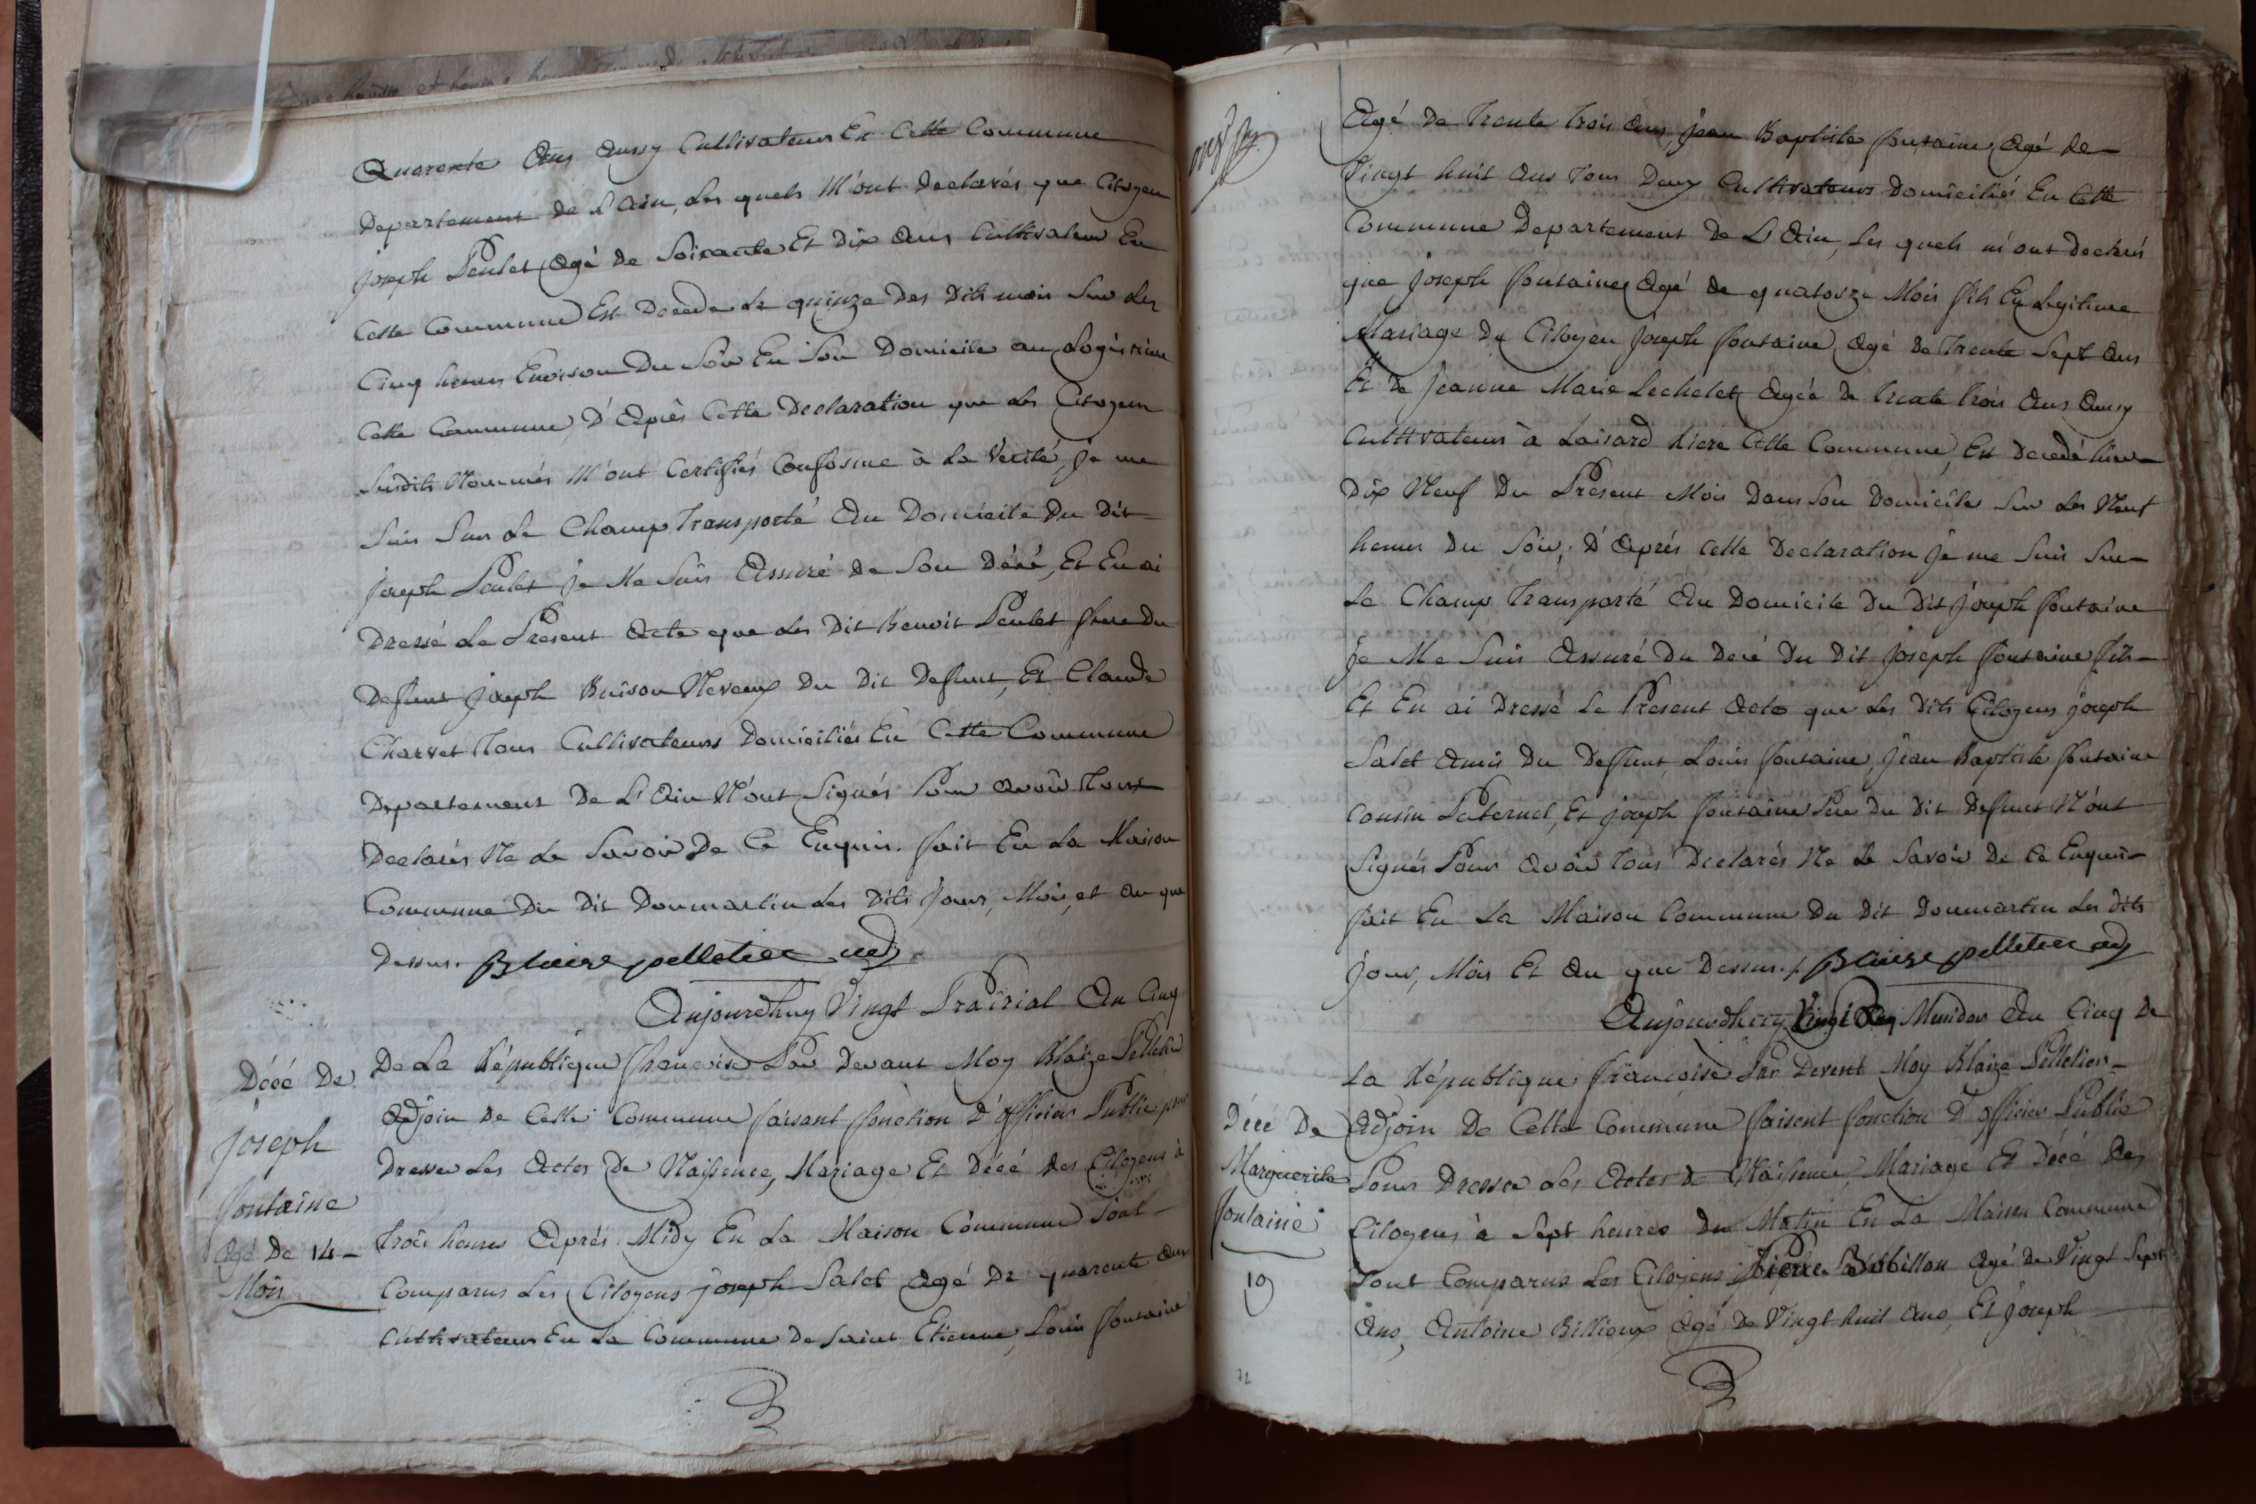 Quarente Ans Aussy Cultivateur En Cette Commune
Departement de L'Ain, Les quels M'ont Declarés que Citoyen
joseph Peulet Agé de Soixante Et Dix Ans Cultivateur En
Cette Commune Est Decede Le quinze Des Dits mois Sur Les
Cinq heures Environ Du Soir En Son Domicile au
Cette Commune, D'Après Cette Declaration que Les Citoyens
Susdits Nommés M'ont Certifiés Conforme à La Verité, Je me
Suis Sur Le Champ Transporté Au Domicile Du Dit
joseph Peulet je Me Suis Assuré De Son Décé, Et En ai
Dressé Le Present Acte que Les Dit Benoit Peulet frere Du
Defunt joseph Buison Neveux Du Dit Defunt, Et Claude
Charvet Tous Cultivateurs Domiciliés En Cette Commune
Departement De L'Ain N'ont Signés Pour Avoir Tous
Declarés Ne Le Savoir De Ce Enquis. fait En La Maison
Commune Du Dit Donmartin Les Dits Jours, Mois, et An que
Dessus. Blaise pelletier adj.
Aujourdhuy Vingt Prairial An Cinq
Décé De
joseph
fontaine
Agé De 14
Mois
De La République francoise Par Devant Moy Blaize Pelletier
Adjoin De Cette Commune faisant fonction D'officier Public pour
Dresser Les Actes De Naissence, Mariage Et Décé des Citoyens à
Trois heures Après Midy En La Maison Commune Sont
Comparus Les Citoyens joseph Salet Agé De quarente Ans
Cultivateurs En La Commune De Saint Etienne, Louis fontaine
Agé De Trente Trois Ans, Jean Baptiste fontaine, Agé De
Vingt huit Ans Tous Deux Cultivateurs Domiciliés En Cette
Commune Departement De L'Ain, Les quels m'ont Declarés
que Joseph fontaine Agé De quatorze Mois fils En Legitime
Mariage Du Citoyen Joseph fontaine Agé De Trente Sept Ans
Et De Jeanne Marie Lechelet Agée De Trente Trois Ans Aussy
Cultivateurs à Loisard Cette Commune, Est Decedé hier
Dix Neuf Du Présent Mois Dans Son Domicile Sur Les Neuf
heures Du Soir; D'Après Cette Declaration Je me Suis Sur
Le Champ Transporté Au Domicile Du Dit Joseph fontaine
Je Me Suis Assuré Du Décé Du Dit Joseph fontaine fils
Et En ai Dressé Le Présent Acte que Les Dits Citoyens joseph
Salet Amis Du Deffunt, Louis fontaine, Jean Baptiste fontaine
Cousin Paternel, Et joseph fontaine Père Du Dit Defunct N'ont
Signés Pour Avoir Tous Declarés Ne Le Savoir De Ce Enquis
fait En La Maison Commune Du Dit Donmartin Les Dits
jour, Mois Et An que Dessus. / Blaise pelletier adj
Aujourdhuy Vingt Messidor An Cinq De
Décé De
Marguerite
fontaine
19
La République francoise Par Devent Moy Blaize Pelletier
Adjoin De Cette Commune faisent fonction D'officier Public
Pour Dresser Les Actes De Naissence, Mariage Et Décé Des
Citoyens à Sept heures Du Matin En La Maison Commune
Sont Comparus Les Citoyens Pierre Robillon Agé De Vingt Sept
Ans, Antoine Billioux Agé De Vingt huit Ans, Et joseph
72